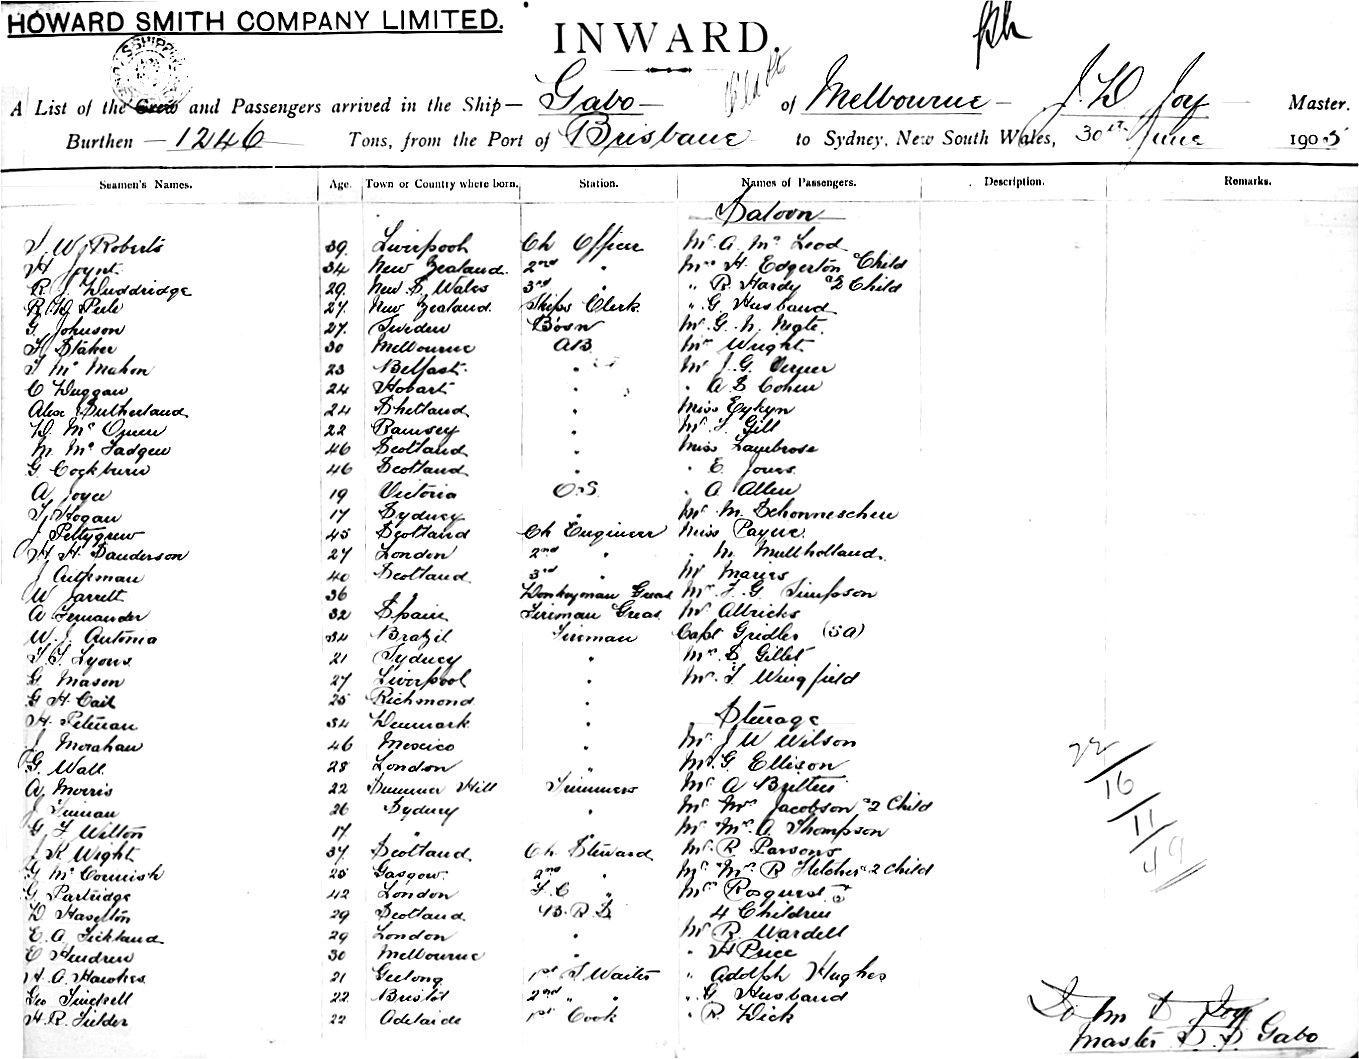 HOWARD SMITH COMPANY LIMITED.
INWARD.
A List of the Crew and Passengers arrived in the Ship — Gabo — of Melbourne — J. D. Joy — Master.
Burthen — 1246 Tons, from the Port of Brisbane to Sydney, New South Wales, 30th June 1905
Seamen's Names. Age. Town or Country where born. Station. Names of Passengers. Description. Remarks.
Saloon
Roberts 39 Liverpool Ch Officer Mr A. Mc Leod
H Joynt 34 New Zealand 2nd " Mrs H. Edgerton Child
R. J. Duddridge 29 New S Wales 3rd " " R Hardy & 2 Child
27 New Zealand Ships Clerk " G Husband
G. Johnson 27 Sweden Bosn Mr G. N.
Staker 30 Melbourne AB Mr Wright
Mc Mahon 23 Belfast " Mr J. G.
C Duggan 24 Hobart " " A S Cohen
Alex Sutherland 24 Shetland " Miss Eykyn
D. Mc Queen 22 Ramsey " Gill
M Mc Fadgen 46 Scotland " Miss Lambrose
G Cockburn 46 Scotland " " E. Jones
A Joyce 19 Victoria O.S. " A Allen
Hogan 17 Sydney " Mr M. Schonneschen
J Pettygrew 45 Scotland Ch Engineer Miss Payne
H. H. Sanderson 27 London 2nd " " M. Mullholland
J 40 Scotland 3rd " Mr Maries
W Jarrett 36 Donkeyman Greas Mr F. G. Simpson
A Fernander 32 Spain Fireman Greas Mr Allricks
W. J. Antonia 34 Brazil Fireman Capt Gridler (SA)
Lyons 21 Sydney " Mr S Gillet
G Mason 27 Liverpool " Mr Wingfield
G H Cail 25 Richmond "
H. Peterson 34 Denmark " Steerage
J Morahan 46 Mexico " Mr J W Wilson
G. Wall 28 London " Mr G Ellison
A Morris 22 Summer Hill Trimmers Mr A Britten
J 26 Sydney " Mr Mrs Jacobson & 2 Child
G F Wilton 17 " Mr Mrs A Thompson
J K Wight 37 Scotland Ch. Steward Mr R Parsons
G Mc Cormish 25 Gasgow 2nd " Mr Mrs R Fletcher & 2 Child
G Partridge 42 London F. C " Mrs Rosquest &
D Haselton 29 Scotland 4 Children
E. A. Tickland 29 London " Mr R. Wardell
C Hendren 30 Melbourne " " H Price
H. A. Hawkes 21 Geelong 1st S Waiter " Adolph Hughes
Geo 22 Bristol 2nd " " " G Husband
H. R. Fielder 22 Adelaide 1st Cook " R. Dick
22/16/11/49
John D Joy
Master S. S. Gabo